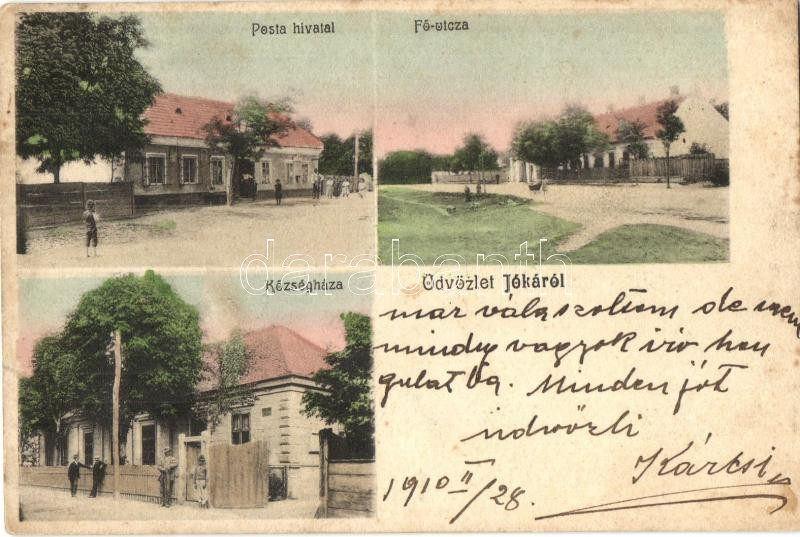 Posta hivatal
Fő-utcza
Községháza
Üdvözlet Jókáról
darabanth
mar válaszoltam de nem
mindig vagyok iro han
gulatba. Minden jót
üdvözli
Kárcsi
1910 II/28.